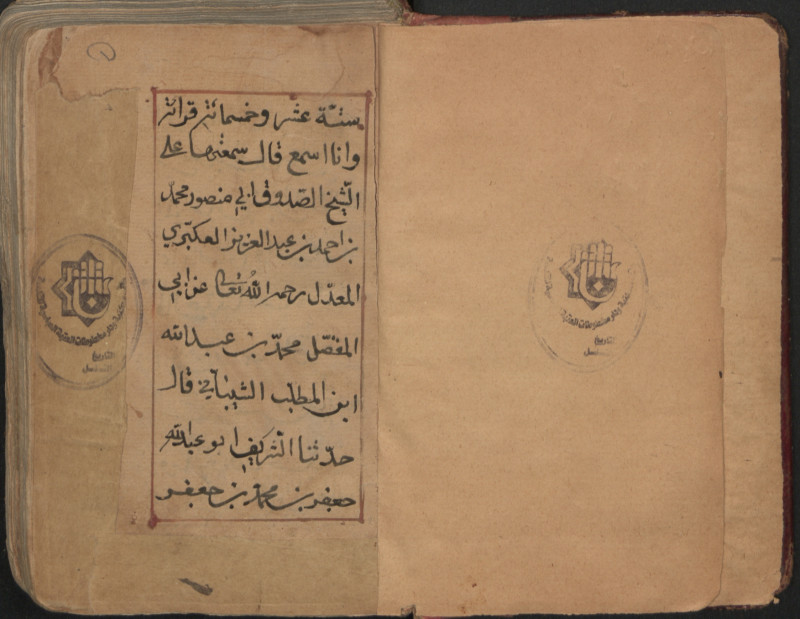 ستة عشر وخمسمائة قرائة
وانا اسمع قال سمعتها على
الشيخ الصدوق ابي منصور محمد
بن احمد بن عبد العزيز العكبري
المعدل رحمه الله تعالى عن ابي
المفضل محمد بن عبد الله
ابن المطلب الشيباني قال
حدثنا الشريف ابو عبد الله
جعفر بن محمد بن جعفر
التاريخ
التسلسل
التاريخ
التسلسل